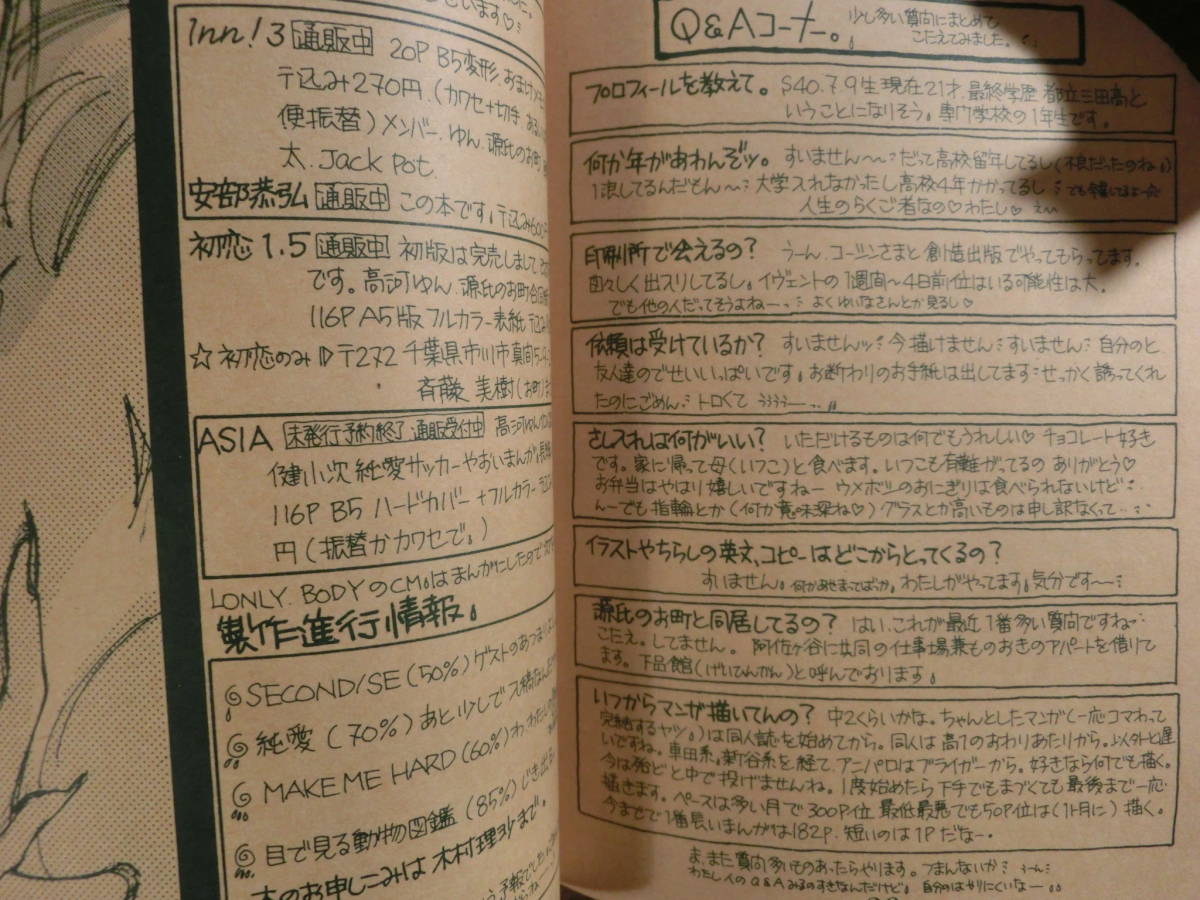 Inn!3 通販中 20P B5変形、おまけ
〒込み270円。(カワセ+切手、ある
便振替)メンバー、ゆん、源氏のお町
太、Jack Pot.
安部恭弘 通販中 この本です。〒込み600円
初恋 1.5 通販中 初版は完売しまして
です。高河ゆん、源氏のお町合同
116P A5版 フルカラー表紙 〒込み
☆初恋のみ▷〒272 千葉県市川市真間5-
斉藤 美樹(お町)
ASIA 未発行予約終了 通販受付中 高河ゆん
健小次 純愛サッカーやおいまんが。長編
116P B5 ハードカバー+フルカラー 〒込
円(振替かカワセで。)
LONLY. BODYのCM。はまんがにしたので
製作進行情報。
SECOND/SE (50%) ゲストのあつまり
純愛 (70%) あと少しで入稿
MAKE ME HARD (60%)
目で見る動物図鑑 (85%)
本のお申しこみは 木村理沙まで。
Q&Aコーナー。 少し多い質問にまとめて
こたえてみました。
プロフィールを教えて。 S40.7.9生 現在21才。最終学歴 都立三田高と
いうことになりそう。専門学校の1年生です。
何か年があわんぞッ。 すいません〜だって高校留年してるし(不良だったのね。)
1浪してるんだもん〜大学入れなかったし高校4年かかってるし
人生のらくご者なの♡わたし♡ え〜
印刷所で会えるの? うーん。コーシンさまと創造出版でやってもらってます。
図々しく出入りしてるし。イヴェントの1週間〜4日前位はいる可能性は大。
でも他の人だってそうよねー… よくゆいなさんとか見るし♡
依頼は受けているか? すいませんッ 今描けません すいません 自分のと
友人達のでせいいっぱいです。お断わりのお手紙は出してます せっかく誘ってくれ
たのにごめん トロくて ううう—…
さし入れは何がいい? いただけるものは何でもうれしい♡ チョコレート好き
です。家に帰って母(いつこ)と食べます。いつこも有難がってるの ありがとう♡
お弁当はやはり嬉しいですねー ウメボシのおにぎりは食べられないけど
んーでも指輪とか(何か意味深ね♡)グラスとか高いものは申し訳なくって…
イラストやちらしの英文、コピーはどこからとってくるの?
すいません。何かあせまってばか。わたしがやってます。気分です〜
源氏のお町と同居してるの? はい、これが最近1番多い質問ですね
こたえ。してません。阿佐ヶ谷に共同の仕事場兼ものおきのアパートを借りて
ます。下品館(げいてんかん)と呼んでおります。
いつからマンガ描いてんの? 中2くらいかな。ちゃんとしたマンガ(一応コマわって
完結するヤツ。)は同人誌を始めてから。同人は高1のおわりあたりから。以外と遅
いですね。車田系。新谷系を経て、アニパロはブライガーから。好きなら何でも描く。
今は殆ど と中で投げませんね。1度始めたら下手でもまづくても最後まで一応
描きます。ペースは多い月で300P位 最低最悪でも50P位は(1ト月に)描く。
今までで1番長いまんがは182P. 短いのは1Pだなー。
ま、また質問多いものあったらやります。つまんないか うーん
わたし人のQ&Aみるのすきなんだけど。自分のはやりにくいなー